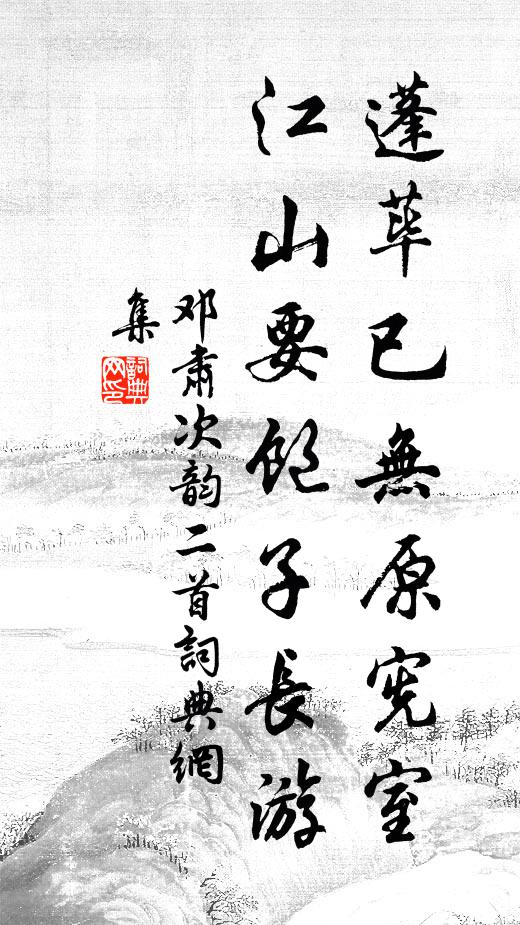 蓬荜已無原宪室
江山要飽子長游
邓肅次韵二首詞典網
集
詞典
网印